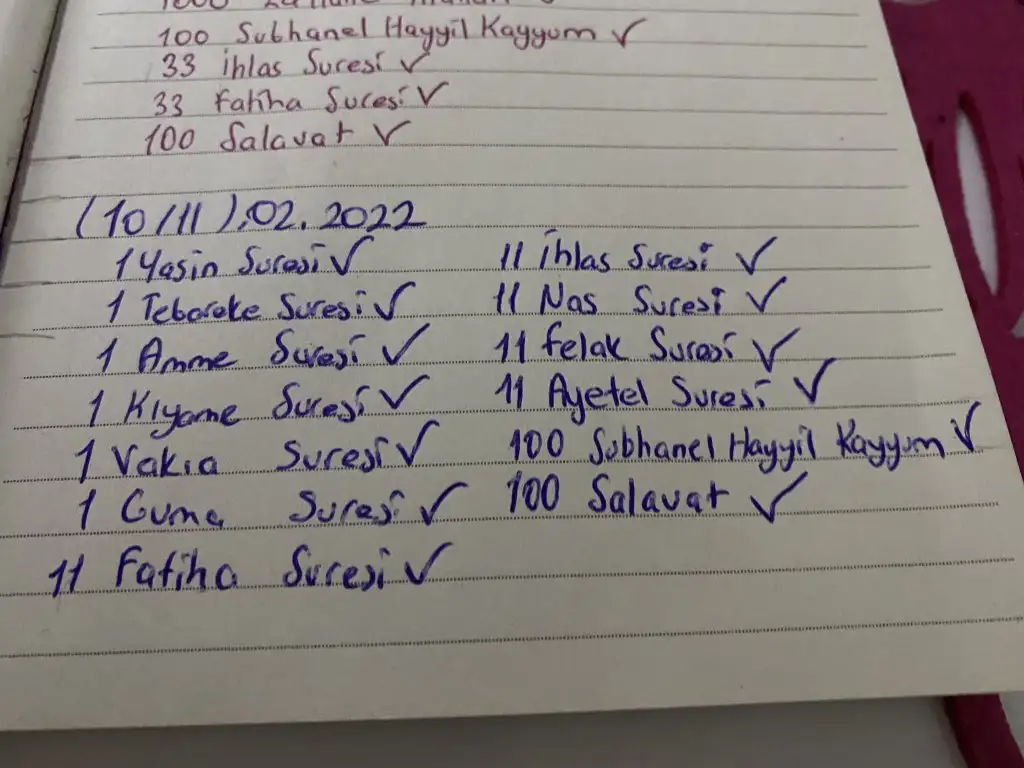 100 Subhanel Hayyil Kayyum ✓
33 İhlas Suresi ✓
33 Fatiha Suresi ✓
100 Salavat ✓
(10/11).02.2022
1 Yasin Suresi ✓
1 Tebareke Suresi ✓
1 Amme Suresi ✓
1 Kıyame Suresi ✓
1 Vakıa Suresi ✓
1 Cuma Suresi ✓
11 Fatiha Suresi ✓
11 İhlas Suresi ✓
11 Nas Suresi ✓
11 Felak Suresi ✓
11 Ayetel Suresi ✓
100 Subhanel Hayyil Kayyum ✓
100 Salavat ✓